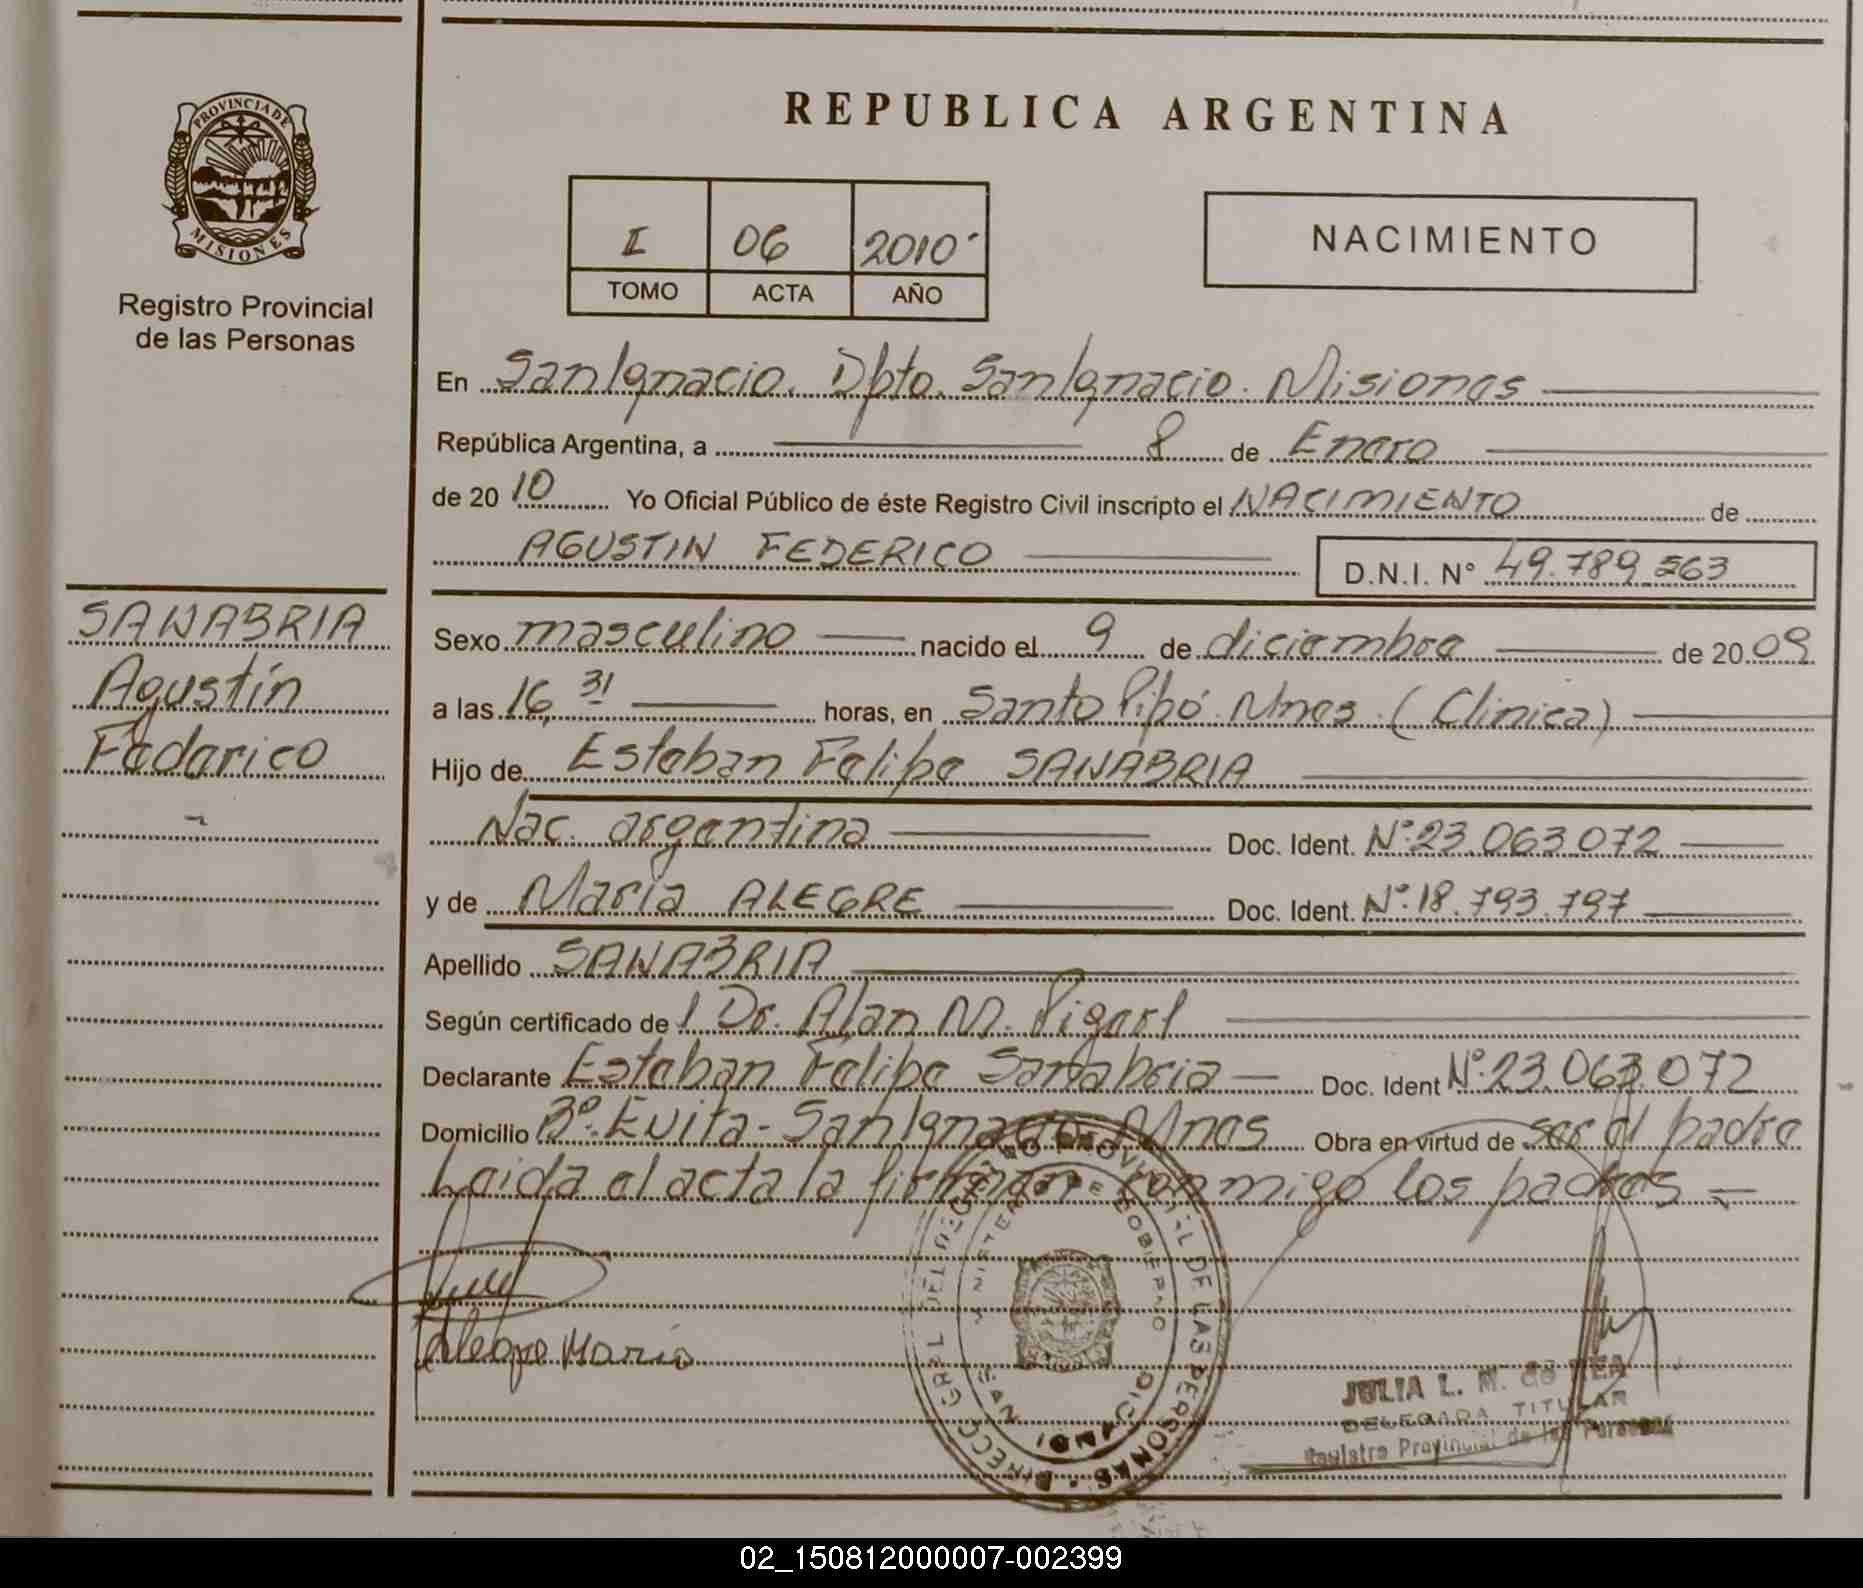 PROVINCIA DE
MISIONES
Registro Provincial
de las Personas
SANABRIA
Agustín
Federico
REPUBLICA ARGENTINA
I 06 2010
TOMO ACTA AÑO
NACIMIENTO
En San Ignacio. Dpto. San Ignacio. Misiones
República Argentina, a 8 de Enero
de 20 10 Yo Oficial Público de éste Registro Civil inscripto el NACIMIENTO de
AGUSTIN FEDERICO D.N.I. N° 49.789.563
Sexo masculino nacido el 9 de diciembre de 20 09
a las 16,31 horas, en Santo Pipó. Mnes. (Clinica)
Hijo de Esteban Felipe SANABRIA
Nac. argentina Doc. Ident. N°: 23.063.072
y de María ALEGRE Doc. Ident. N°: 18.793.797
Apellido SANABRIA
Según certificado de l Dr. Alan M.
Declarante Esteban Felipe Sanabria Doc. Ident N°: 23.063.072
Domicilio B°. Evita - San Ignacio Mnes Obra en virtud de ser el padre
Leida el acta la firman conmigo los padres
Alegre Maria
JULIA L. M. de REA
DELEGADA TITULAR
Registro Provincial de las Personas
02_150812000007-002399